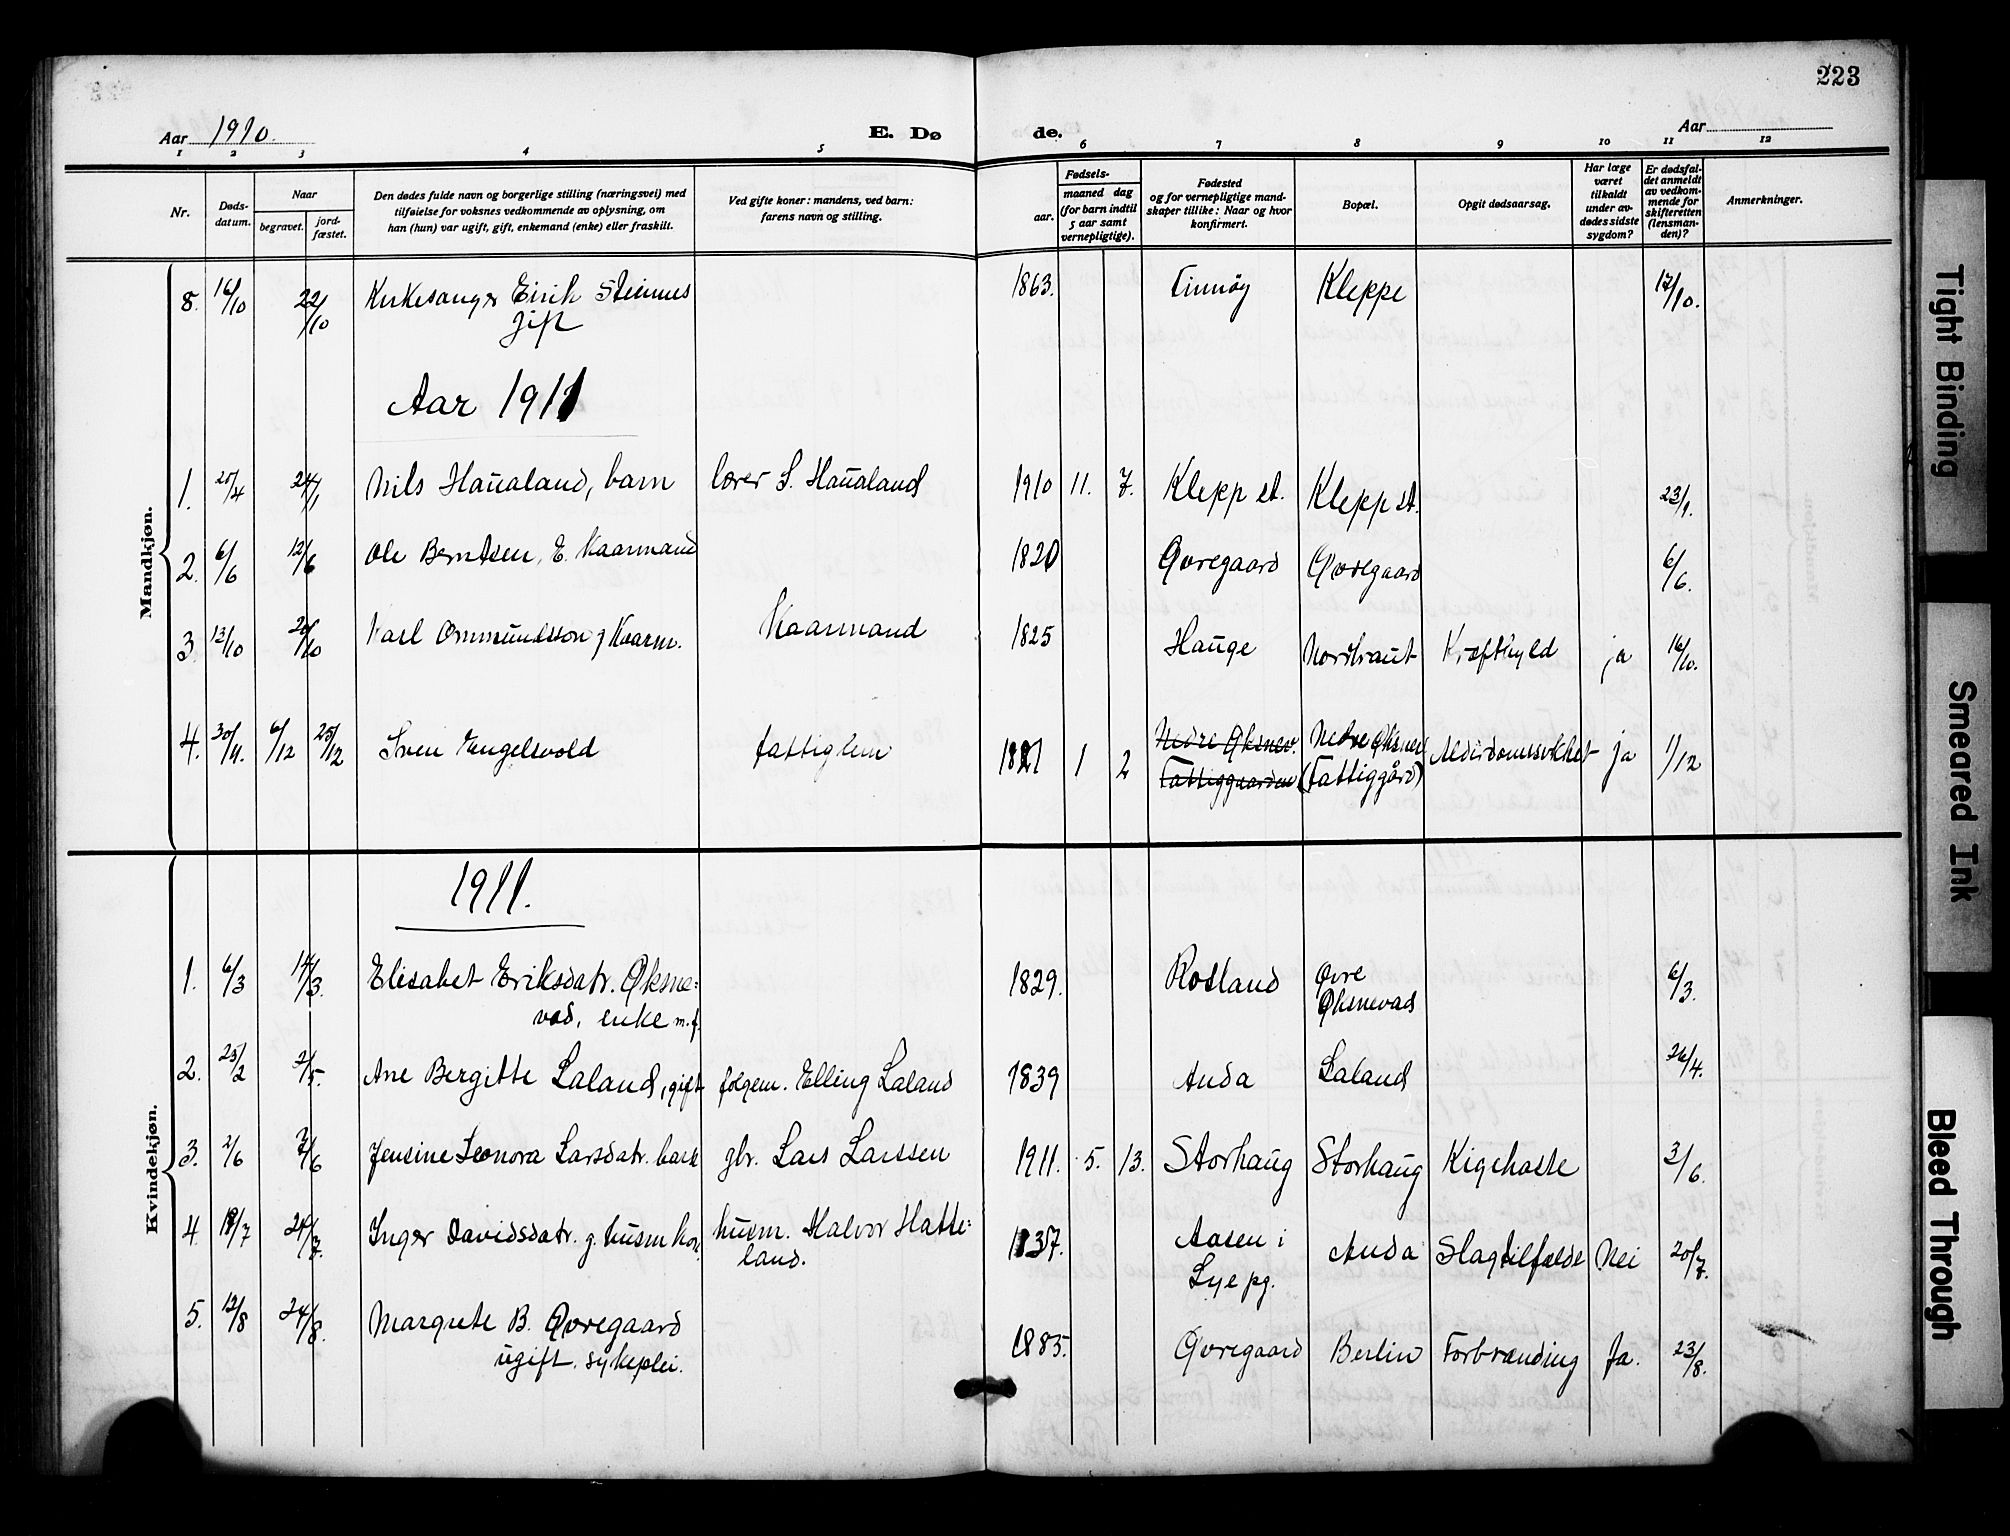 223
Aar 1910.
E. Dø de.
Aar
1 2 3 4 5 6 7 8 9 10 11 12
Nr.
Døds-
datum.
Naar
begravet.
jord-
fæstet.
Den dødes fulde navn og borgerlige stilling (næringsvei) med
tilføielse for voksnes vedkommende av oplysning, om
han (hun) var ugift, gift, enkemand (enke) eller fraskilt.
Ved gifte koner: mandens, ved barn:
farens navn og stilling.
Fødsels-
aar.
maaned dag
(for barn indtil
5 aar samt
vernepligtige).
Fødested
og for vernepligtige mand-
skaper tillike: Naar og hvor
konfirmert.
Bopæl.
Opgit dødsaarsag.
Har læge
været
tilkaldt
under av-
dødes sidste
sygdom?
Er dødsfal-
det anmeldt
av vedkom-
mende for
skifteretten
(lensman-
den)?
Anmerkninger.
Mandkjøn.
8. 16/10 22/10 Kirkesanger Eirik Steinnes 1863. Finnøy Kleppe 17/10.
gift
Aar 1911
1. 20/4 24/1 Nils Haualand, barn lærer S. Haualand 1910 11. 7. Klepp st. Klepp st. 23/1.
2. 6/6 12/6 Ole Berntsen, E. Kaarmand 1820 Øvregaard Øvregaard 6/6.
3. 13/10 20/10 Karl Ommundsson g Kaarm. Kaarmand 1825 Hauge Nordbraut Kræftbyld ja 16/10.
4. 30/11. 6/12 25/12 Sven Engelsvold fattiglem 1821 1 2 Nedre Øksnev. Nedre Øksnev. Alderdomssvækket ja 1/12
Fattiggaarden (Fattiggård)
Kvindekjøn.
1911.
1. 6/3 14/3. Elisabet Eriksdatr. Øksne= 1829. Rosland Øvre 6/3.
vad, enke m.f. Øksnevad
2. 25/2 2/5. Ane Bergitte Laland, gift følgem. Elling Laland 1839 Anda Laland 26/4.
3. 2/6 7/6 Jensine Leonora Larsdatr. barn gbr. Lars Larssen 1911. 5. 13. Storhaug Storhaug Kighoste 3/6.
4. 19/7 24/7. Inger Davidsdatr. g. husm kon. husm. Halvor Hatte= 1837. Aasen i Anda Slagtilfælde Nei 20/7.
land. Lye pg.
5. 12/8 24/8. Margrete B. Øvregaard 1885. Øvregaard Berlin Forbrænding Ja. 23/8.
ugift. sykeplei.
Tight Binding
Smeared Ink
Bleed Through